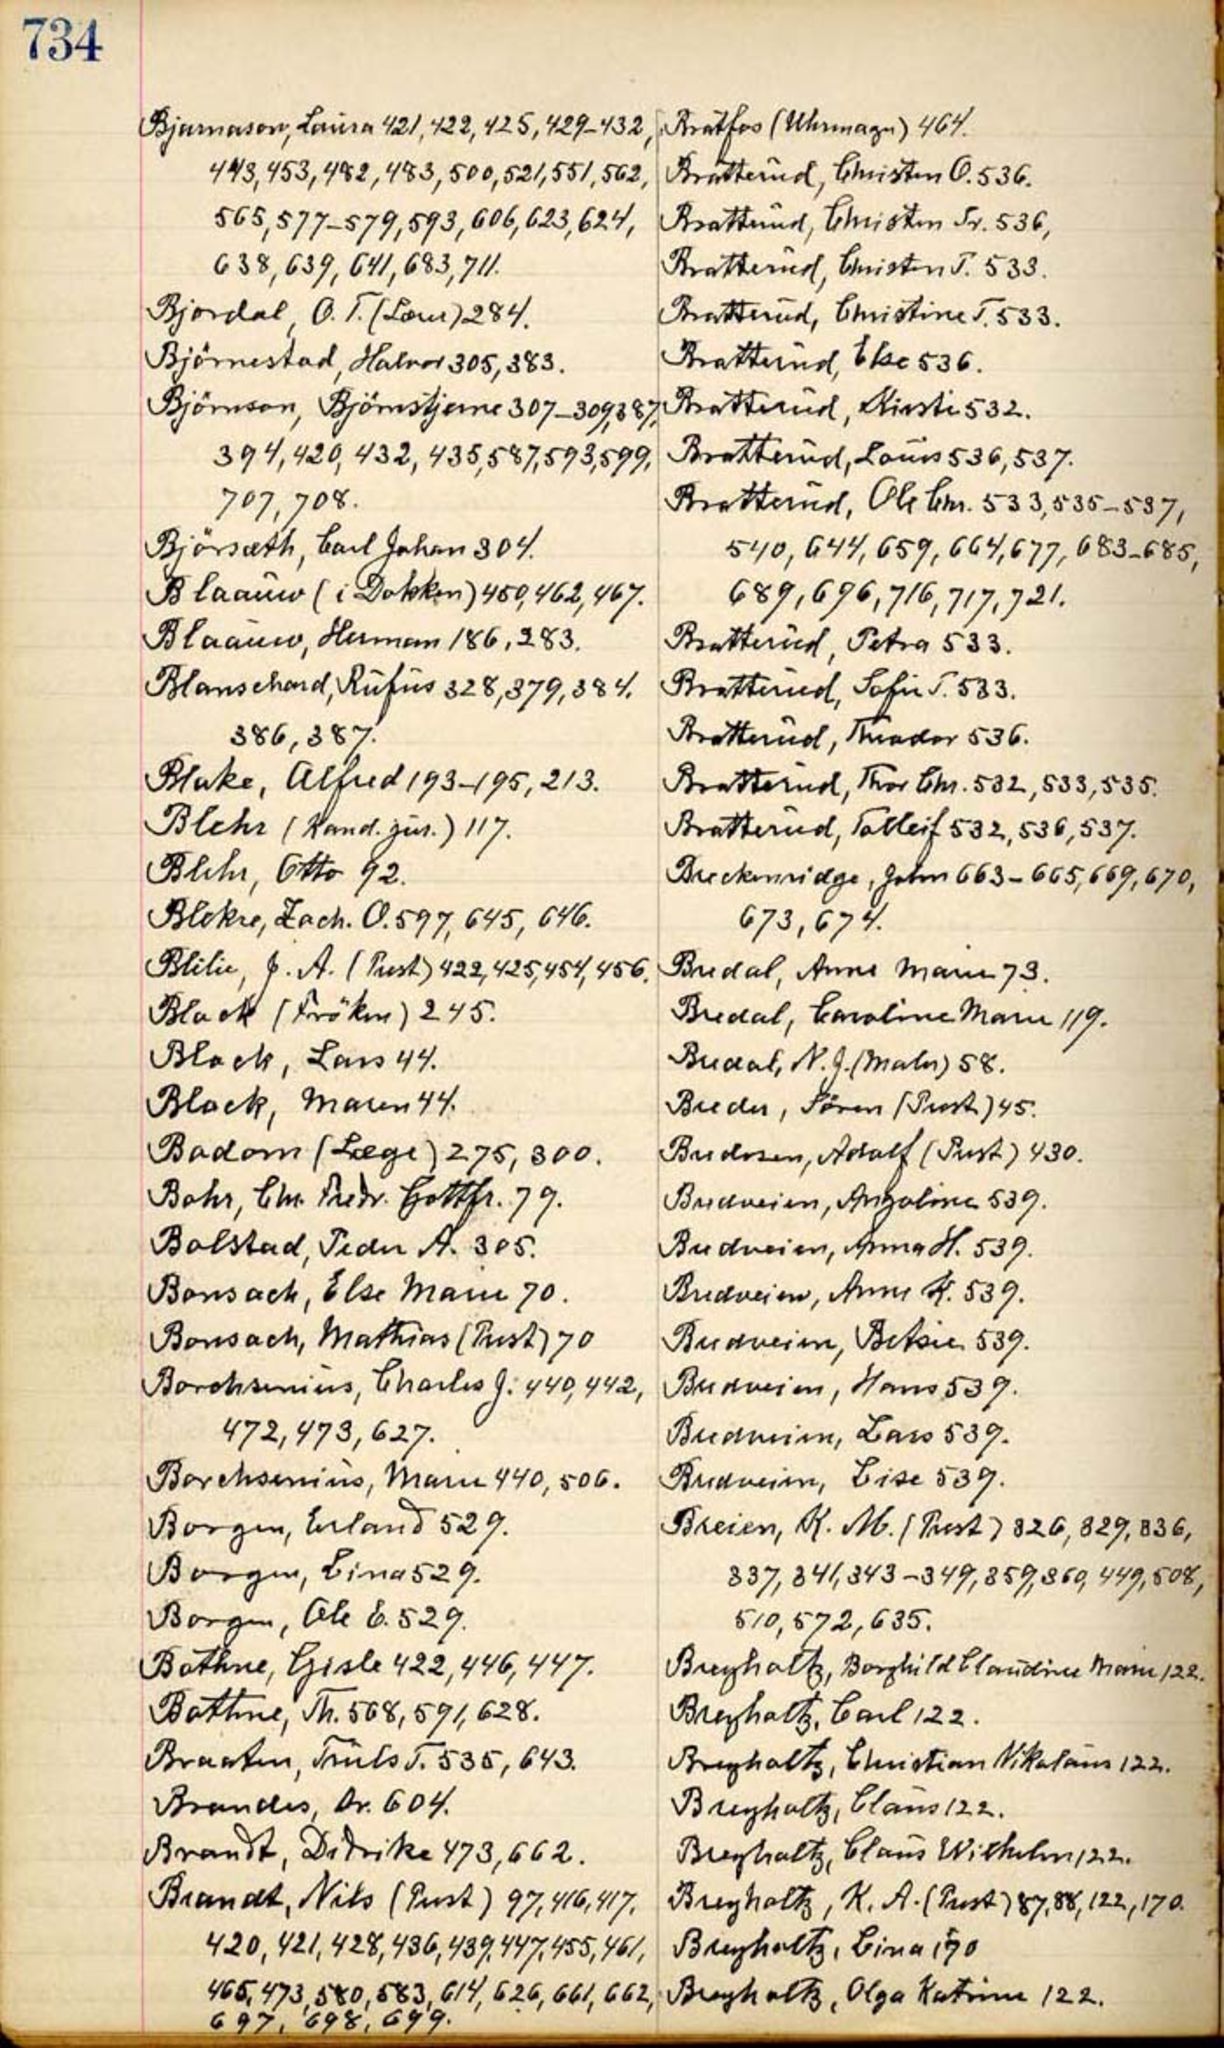 734
Bjarnason, Laura 421, 422, 425, 429-432,
443, 453, 482, 483, 500, 521, 551, 562,
565, 577-579, 593, 606, 623, 624,
638, 639, 641, 683, 711.
Bjordal, O. T. (Lærer) 284.
Björnestad, Halvor 305, 383.
Björnson, Björnstjerne 307-309, 387,
394, 420, 432, 435, 587, 593, 599,
707, 708.
Björsæth, Carl Johan 304.
Blaauw (i Dokken) 450, 462, 467.
Blaauw, Herman 186, 283.
Blanschard, Rufus 328, 379, 384.
386, 387.
Blake, Alfred 193-195, 213.
Blehr (Kand. jur.) 117.
Blehr, Otto 92.
Blekre, Zach. O. 597, 645, 646.
Blilie, J. A. (Prest) 422, 425, 454, 456.
Block (Fröken) 245.
Block, Lars 44.
Block, Maren 44.
Bodom (Læge) 275, 300.
Bohr, Chr. Fredr. Gottfr. 79.
Bolstad, Peder A. 305.
Bonsach, Else Marie 70.
Bonsach, Mathias (Prest) 70
Borchsenius, Charles J. 440, 442,
472, 473, 627.
Borchsenius, Marie 440, 506.
Borgen, Erland 529.
Borgen, Lina 529.
Borgen, Ole E. 529.
Bothne, Gisle 422, 446, 447.
Bothne, Th. 568, 591, 628.
Braaten, Truls T. 535, 643.
Brandes, Dr. 604.
Brandt, Didrike 473, 662.
Brandt, Nils (Prest) 97, 416, 417,
420, 421, 428, 436, 439, 447, 455, 461,
465, 473, 580, 583, 614, 626, 661, 662,
697, 698, 699.
Bratfos (Uhrmager) 464.
Bratterud, Christen O. 536.
Bratterud, Christen Sr. 536,
Bratterud, Christen T. 533.
Bratterud, Christine T. 533.
Bratterud, Else 536.
Bratterud, Kirsti 532.
Bratterud, Louis 536, 537.
Bratterud, Ole Chr. 533, 535-537,
540, 644, 659, 664, 677, 683-685,
689, 696, 716, 717, 721.
Bratterud, Petra 533.
Bratterud, Sofie T. 533.
Bratterud, Theodor 536.
Bratterud, Thor Chr. 532, 533, 535.
Bratterud, Tolleif 532, 536, 537.
Breckenridge, John 663-665, 669, 670,
673, 674.
Bredal, Anne Marie 73.
Bredal, Caroline Marie 119.
Bredal, N. J. (Maler) 58.
Breder, Sören (Prest) 45.
Bredesen, Adolf (Prest) 430.
Bredveien, Angoline 539.
Bredveien, Anna H. 539.
Bredveien, Anne K. 539.
Bredveien, Betsie 539.
Bredveien, Hans 539.
Bredveien, Lars 539.
Bredveien, Lise 539.
Breien, K. M. (Prest) 326, 329, 336,
337, 341, 343-349, 359, 360, 449, 508,
510, 572, 635.
Breyholtz, Borghild Claudine Marie 122.
Breyholtz, Carl 122.
Breyholtz, Christian Nikolaus 122.
Breyholtz, Claus 122.
Breyholtz, Claus Wilhelm 122.
Breyholtz, K. A. (Prest) 87, 88, 122, 170.
Breyholtz, Lina 170
Breyholtz, Olga Katrine 122.